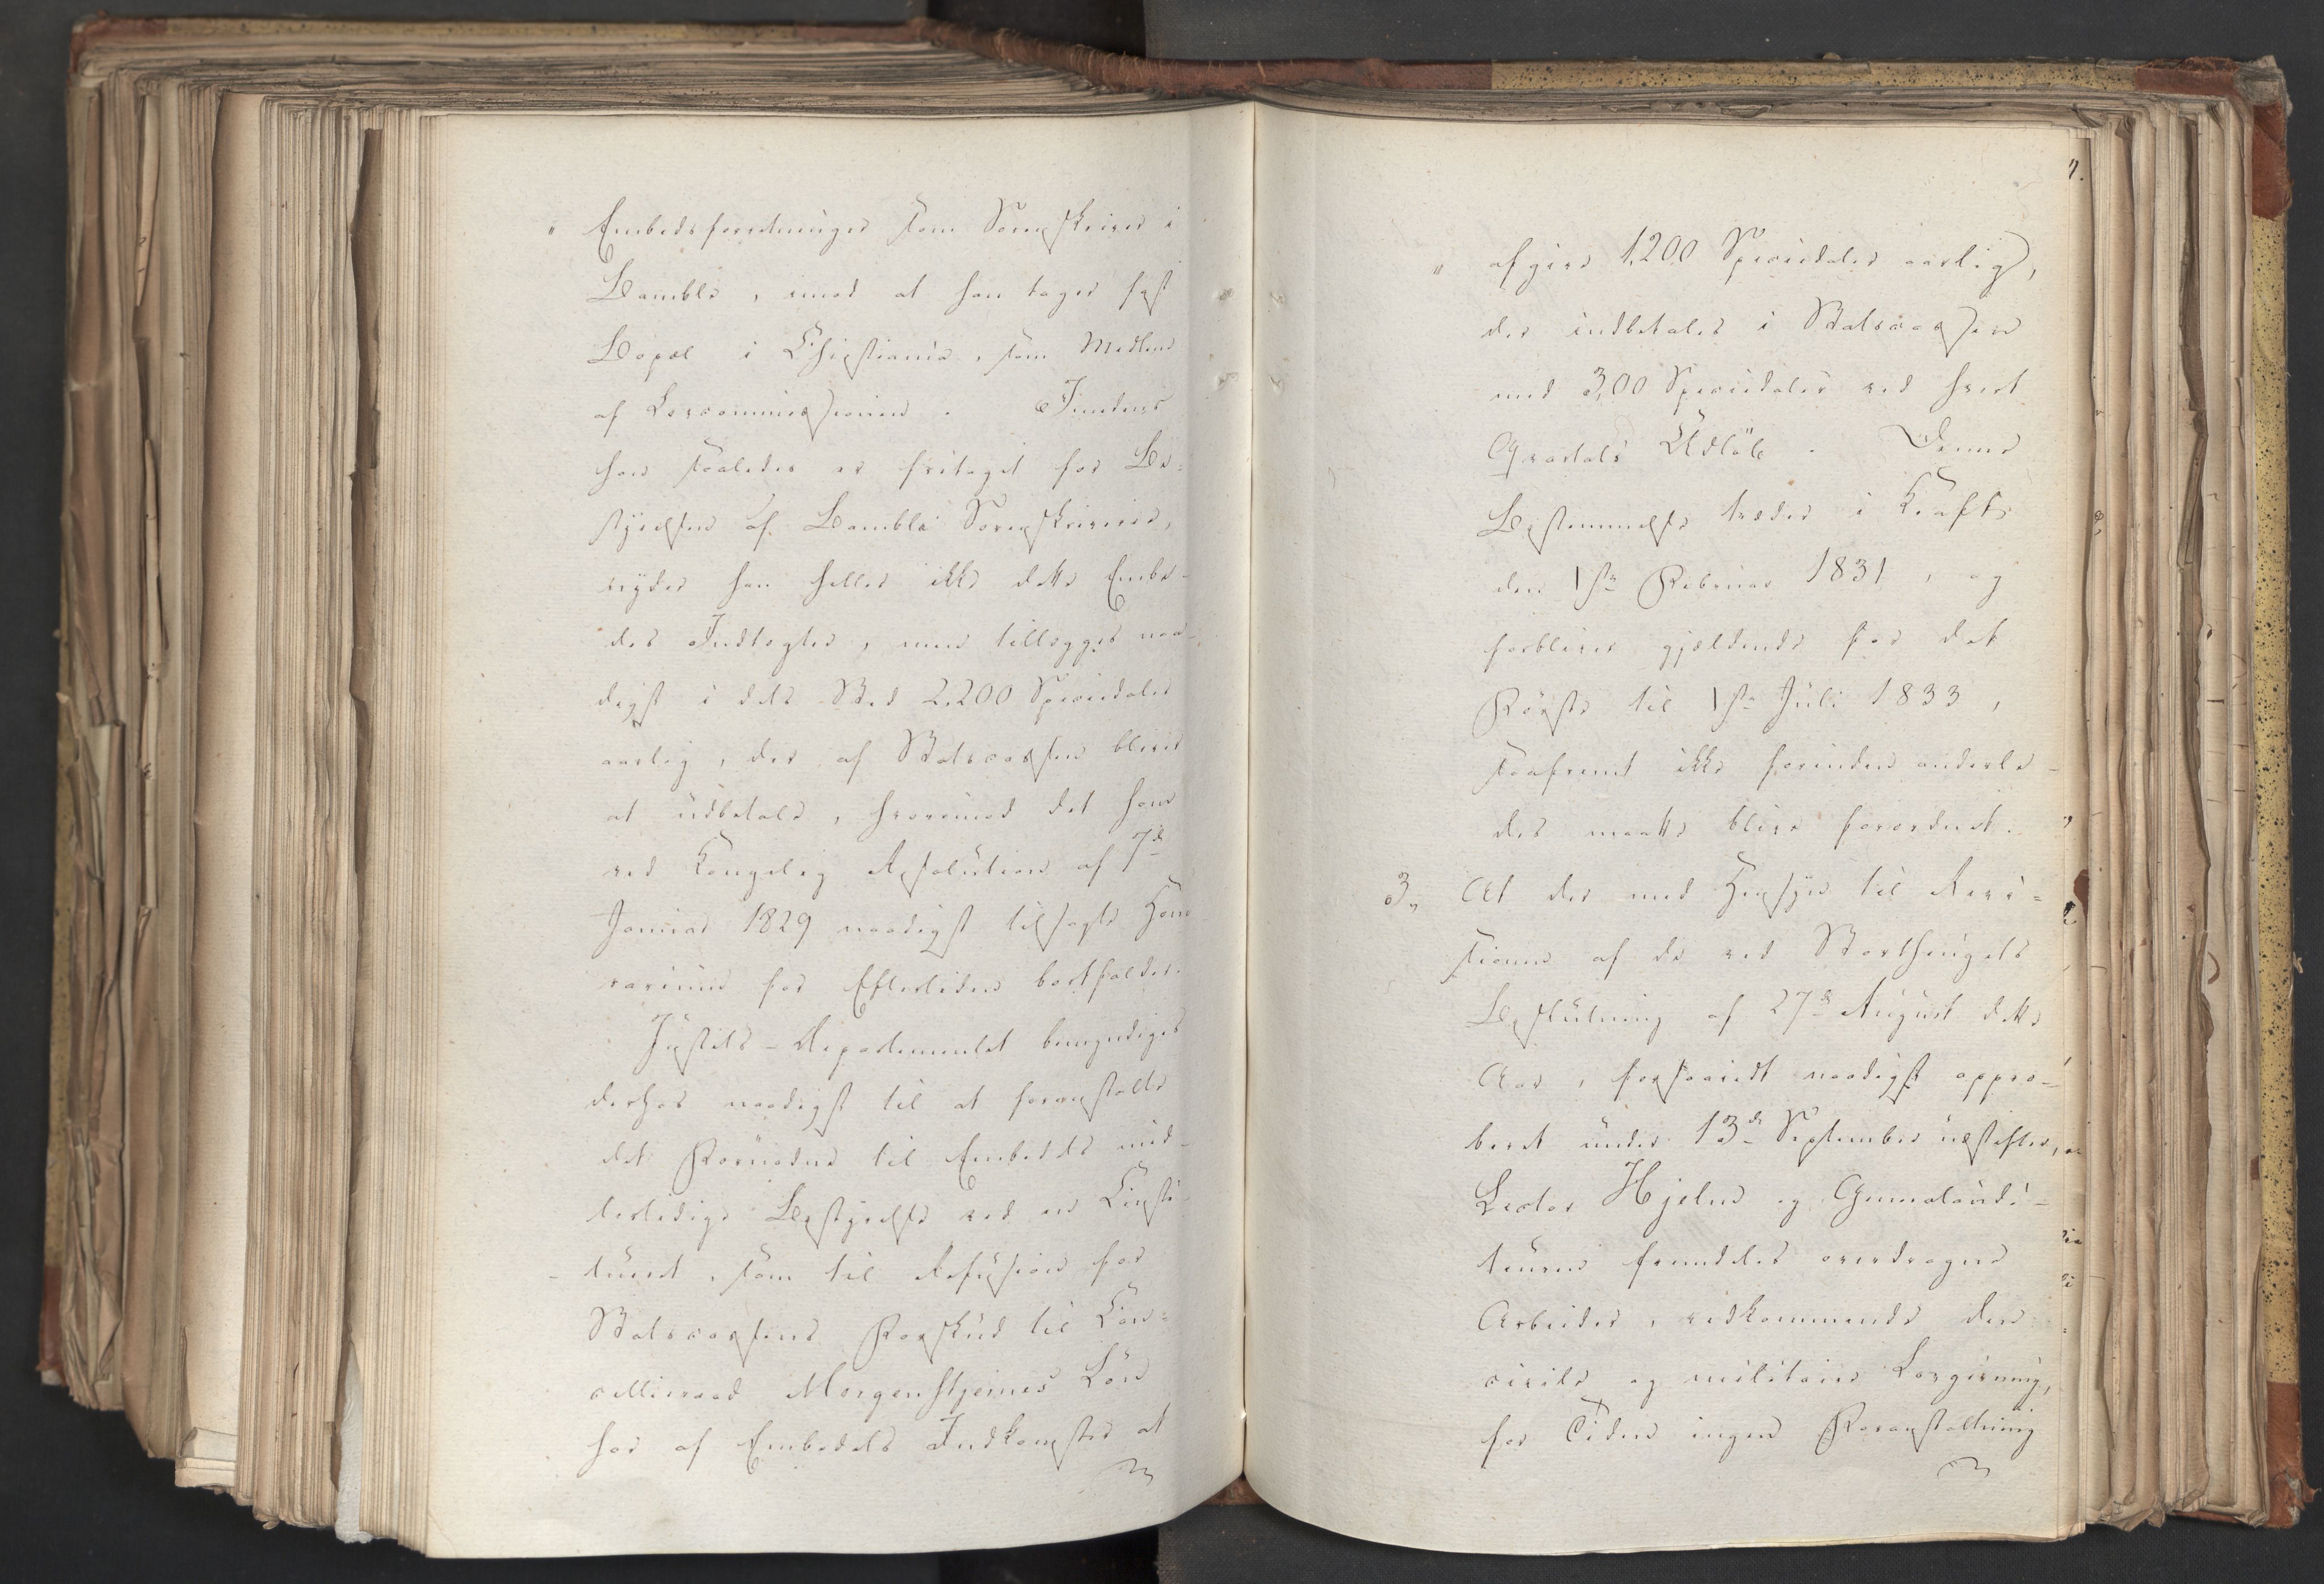 " Embedsforretninger som Sorenskriver i
Bamble, imod at han tager fast
Bopæl i Christiania, som Medlem
af Lovcommissionen. Imedens
han saaledes er fritaget for Be=
styrelsen af Bamble Sorenskriverie,
nyder han heller ikke dette Embe-
des Indtægter, men tillægges naa-
digst i dets Sted 2,200 Speciedaler
aarlig, der af Statscassen bliver
at udbetale, hvorimod det ham
ved Kongelig Resolution af 7de
Januar 1829 naadigst tilsagte Hono
rarium for Eftertiden bortfalder.
Justits-Departementet bemyndiges
derhos naadigst til at foranstalte
det Fornødne til Embedets mid-
lertidige Bestyrelse ved en Consti-
tueret, som til Refusion for
Statscassens Forskud til Can=
celliraad Morgenstjernes Løn
har af Embedets Indkomster at
" afgive 1,200 Speciedaler aarlig,
der indbetales i Statscassen
med 300 Speciedaler ved hvert
Qvartals Udløb. Denne
Bestemmelse træder i Kraft
den 1ste Februar 1831, og
forbliver gjældende for det
Første til 1ste Juli 1833,
saafremt ikke forinden anderle-
des maatte blive forordnet.
3, At der med Hensyn til Revi=
sionen af de ved Storthingets
Beslutning af 27de August dette
Aar, forsaavidt naadigst appro-
beret under 13de September næstefter,
Lector Hjelm og Generalaudi-
teuren fremdeles overdragne
Arbeider, vedkommende den
civile og militaire Lovgivning,
for Tiden ingen Foranstaltning